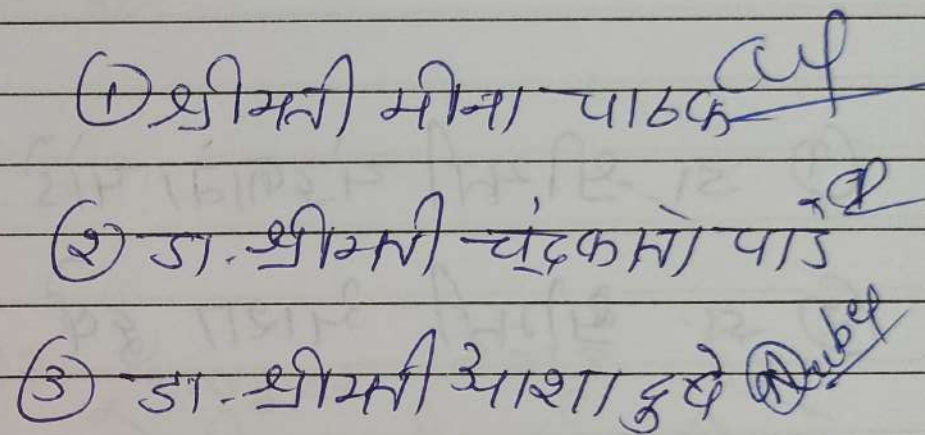 ① श्रीमती मीना पाठक
② डा. श्रीमती चंद्रकान्ता पांडे
③ डा. श्रीमती आशा दुबे